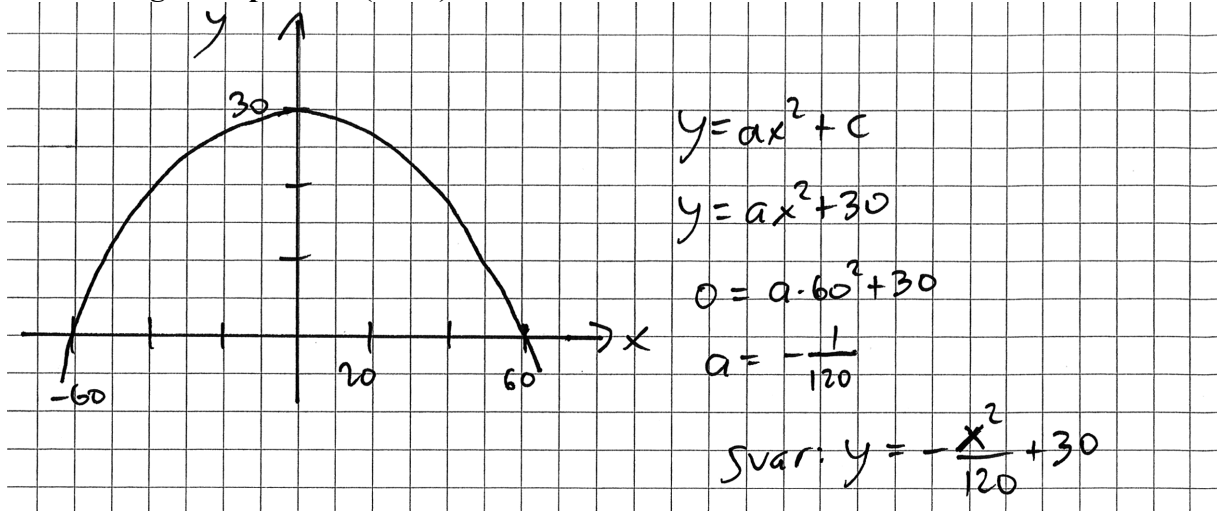 y
30
-60
20
60
x
y = ax² + c
y = ax² + 30
0 = a·60² + 30
a = -1/120
Svar: y = -x²/120 + 30